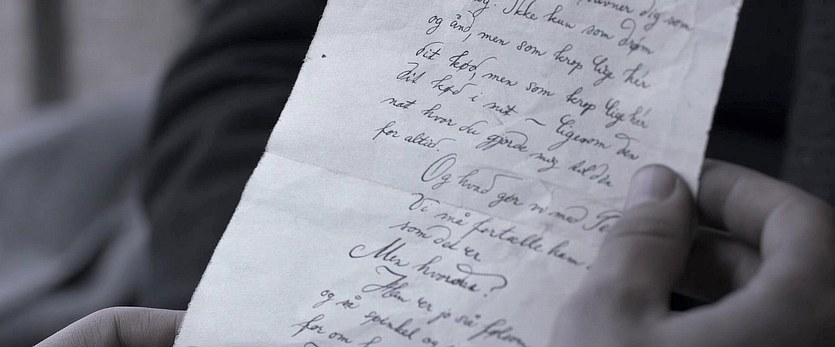 dig som
. Ikke kun som drøm
og ånd, men som krop lige hér
dit kød, men som krop lige hér
dit kød i mit ~ ligesom den
nat hvor du gjorde mig til din
for altid.
Og hvad gør vi med Te
Vi må fortælle ham.
som det er
Men hvordan?
Han er jo så følsom
og så spinkel og
for om